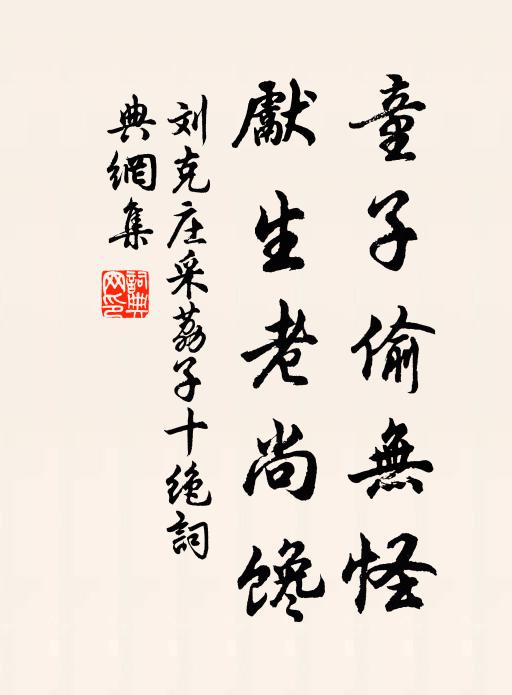 童子偷無怪
獻生老尚馋
刘克庄采荔子十绝詞
典網集
詞典网印